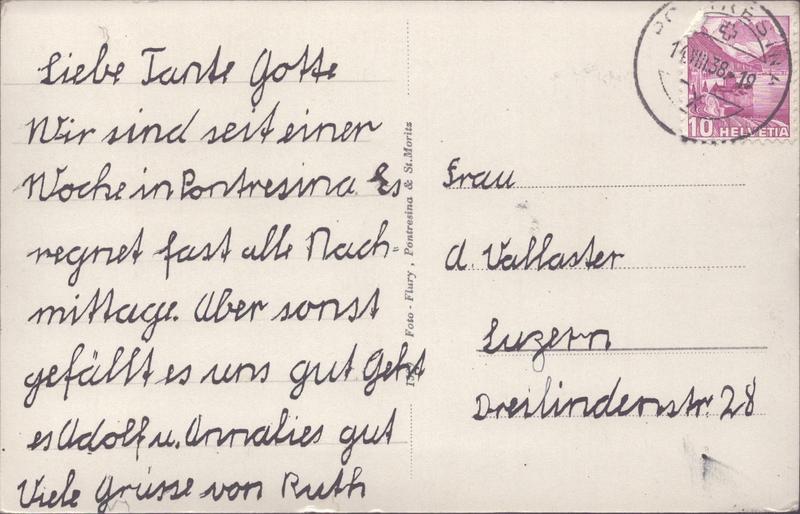 Liebe Tante Gotte
Wir sind seit einer
Woche in Pontresina Es
regnet fast alle Nach=
mittage. Aber sonst
gefällt es uns gut Geht
es Adolf u. Annalies gut
Viele Grüsse von Ruth
Foto - Flury, Pontresina & St. Moritz
PONTRESINA
11.VIII.38-19
10 HELVETIA
Frau
A. Vallaster
Luzern
Dreilindenstr. 28